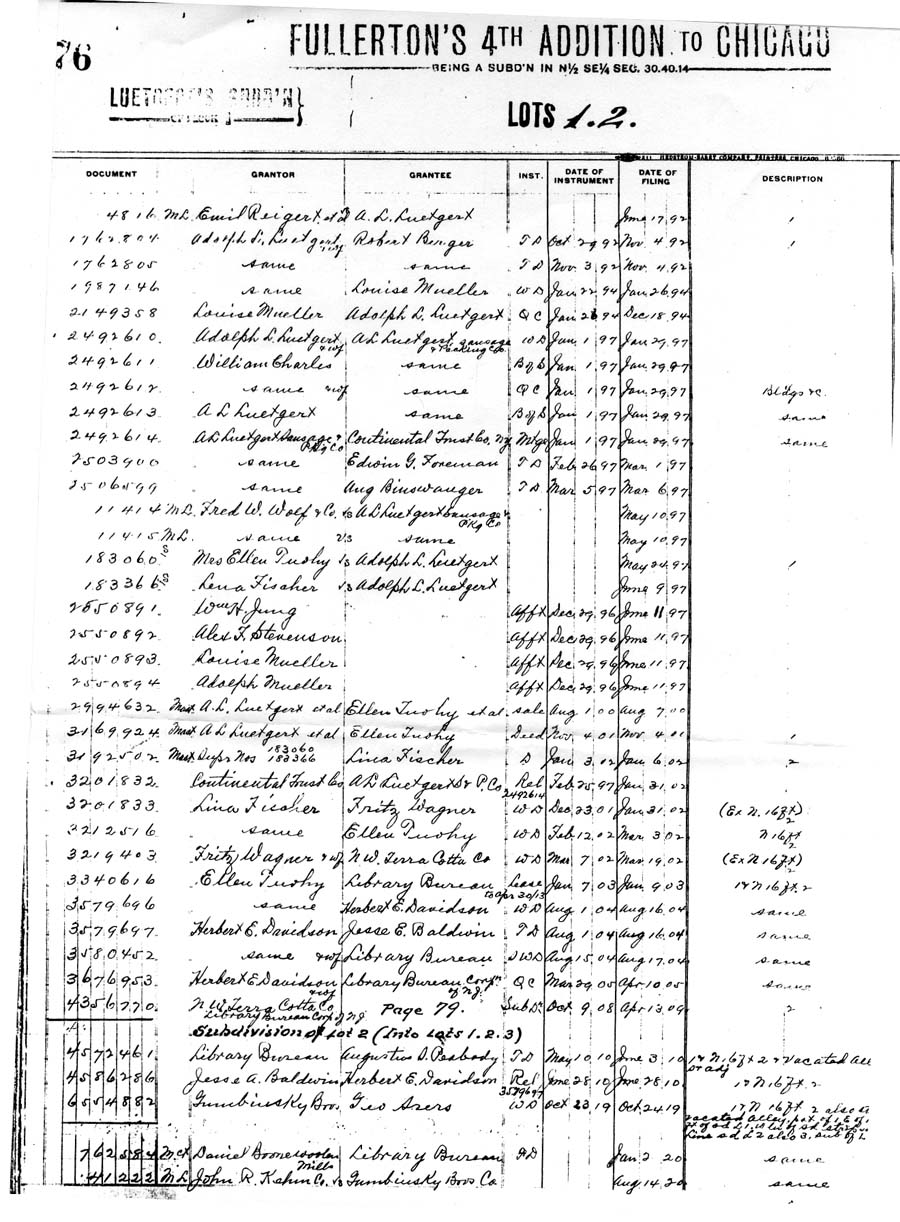 76
FULLERTON'S 4TH ADDITION TO CHICAGO
BEING A SUBD'N IN N½ SE¼ SEC. 30.40.14
LOTS 1.2.
DOCUMENT GRANTOR GRANTEE INST. DATE OF INSTRUMENT DATE OF FILING DESCRIPTION
4816 ML Emil Reigert et al A. L. Luetgert June 17,92 1
1762804 Adolph L. Luetgert & wf Robert Berger TD Oct 29 92 Nov 4 92 1
1762805 same same TD Nov 3 92 Nov 4 92
1987146 same Louise Mueller WD Jan 22 94 Jan 26 94
2149358 Louise Mueller Adolph L. Luetgert QC Jan 26 94 Dec 18 94
2492610 Adolph L. Luetgert & wf A L Luetgert Sausage & Packing Co. WD Jan 1 97 Jan 29 97
2492611 William Charles same B of S Jan 1 97 Jan 29 97
2492612 same & wf same QC Jan 1 97 Jan 29 97 Bldgs &c.
2492613 A L Luetgert same B of S Jan 1 97 Jan 29 97 same
2492614 A L Luetgert Sausage & Pkg Co Continental Trust Co. NY Mtge Jan 1 97 Jan 29 97 same
2503900 same Edwin G. Foreman TD Feb 26 97 Mar 1 97
2506599 same Aug Binswanger TD Mar 5 97 Mar 6 97
11414 ML Fred W. Wolf & Co. vs A L Luetgert Sausage & Pkg Co May 10 97
11415 ML same vs same May 10 97
183060 S Mrs Ellen Tuohy vs Adolph L. Luetgert May 24 97 1
183366 S Lena Fischer vs Adolph L. Luetgert June 9 97
2550891 Wm H. Jung Afft Dec 29 96 June 11 97
2550892 Alex F. Stevenson Afft Dec 29 96 June 11 97
2550893 Louise Mueller Afft Dec 29 96 June 11 97
2550894 Adolph Mueller Afft Dec 29 96 June 11 97
2994632 Mast A. L. Luetgert et al Ellen Tuohy et al sale Aug 1 00 Aug 7 00
3169924 Mast A L Luetgert et al Ellen Tuohy Deed Nov 4 01 Nov 4 01 1
3192502 Mast Nos 183060 183366 Lina Fischer D Jan 3 02 Jan 6 02 2
3201832 Continental Trust Co A L Luetgert S & P. Co Rel 2492614 Feb 25 97 Jan 31 02
3201833 Lina Fischer Fritz Wagner WD Dec 23 01 Jan 31 02 (Ex N. 16 ft) 2
3212516 same Ellen Tuohy WD Feb 12 02 Mar 3 02 N 16 ft 2
3219403 Fritz Wagner & wf N W Terra Cotta Co WD Mar 7 02 Mar 19 02 (Ex N 16 ft) 2
3340616 Ellen Tuohy Library Bureau Lease to Apr 30/13 Jan 7 03 Jan 9 03 1 & N 16 ft 2
3579696 same Herbert E. Davidson WD Aug 1 04 Aug 16 04 same
3579697 Herbert E. Davidson Jesse E. Baldwin TD Aug 1 04 Aug 16 04 same
3580452 same & wf Library Bureau SWD Aug 15 04 Aug 17 04 same
3676953 Herbert E Davidson & wf Library Bureau Corp'n of N.J. QC Mar 29 05 Apr 10 05 same
4356770 N W Terra Cotta Co Library Bureau Corp of NJ Page 79. Sub D. Oct 9 08 Apr 13 09 2
Subdivision of Lot 2 (Into Lots 1.2.3)
4572461 Library Bureau Augustus S. Peabody TD May 10 10 June 3 10 1 & N 16 ft 2 & Vacated All adj
4586286 Jesse A. Baldwin Herbert E. Davidson Rel 3579697 June 28 10 June 28 10 1 & N 16 ft 2
6554882 Gumbinsky Bros. Geo Asers WD Oct 23 19 Oct 24 19 1 & N 16 ft 2 also
Vacated Alley
2 also 3, sub of L
762584 Mct Daniel Boone Woolen Mills Library Bureau Jan 2 20 same
41222 ML John R. Kehm Co. vs Gumbinsky Bros Co Aug 14 20 same